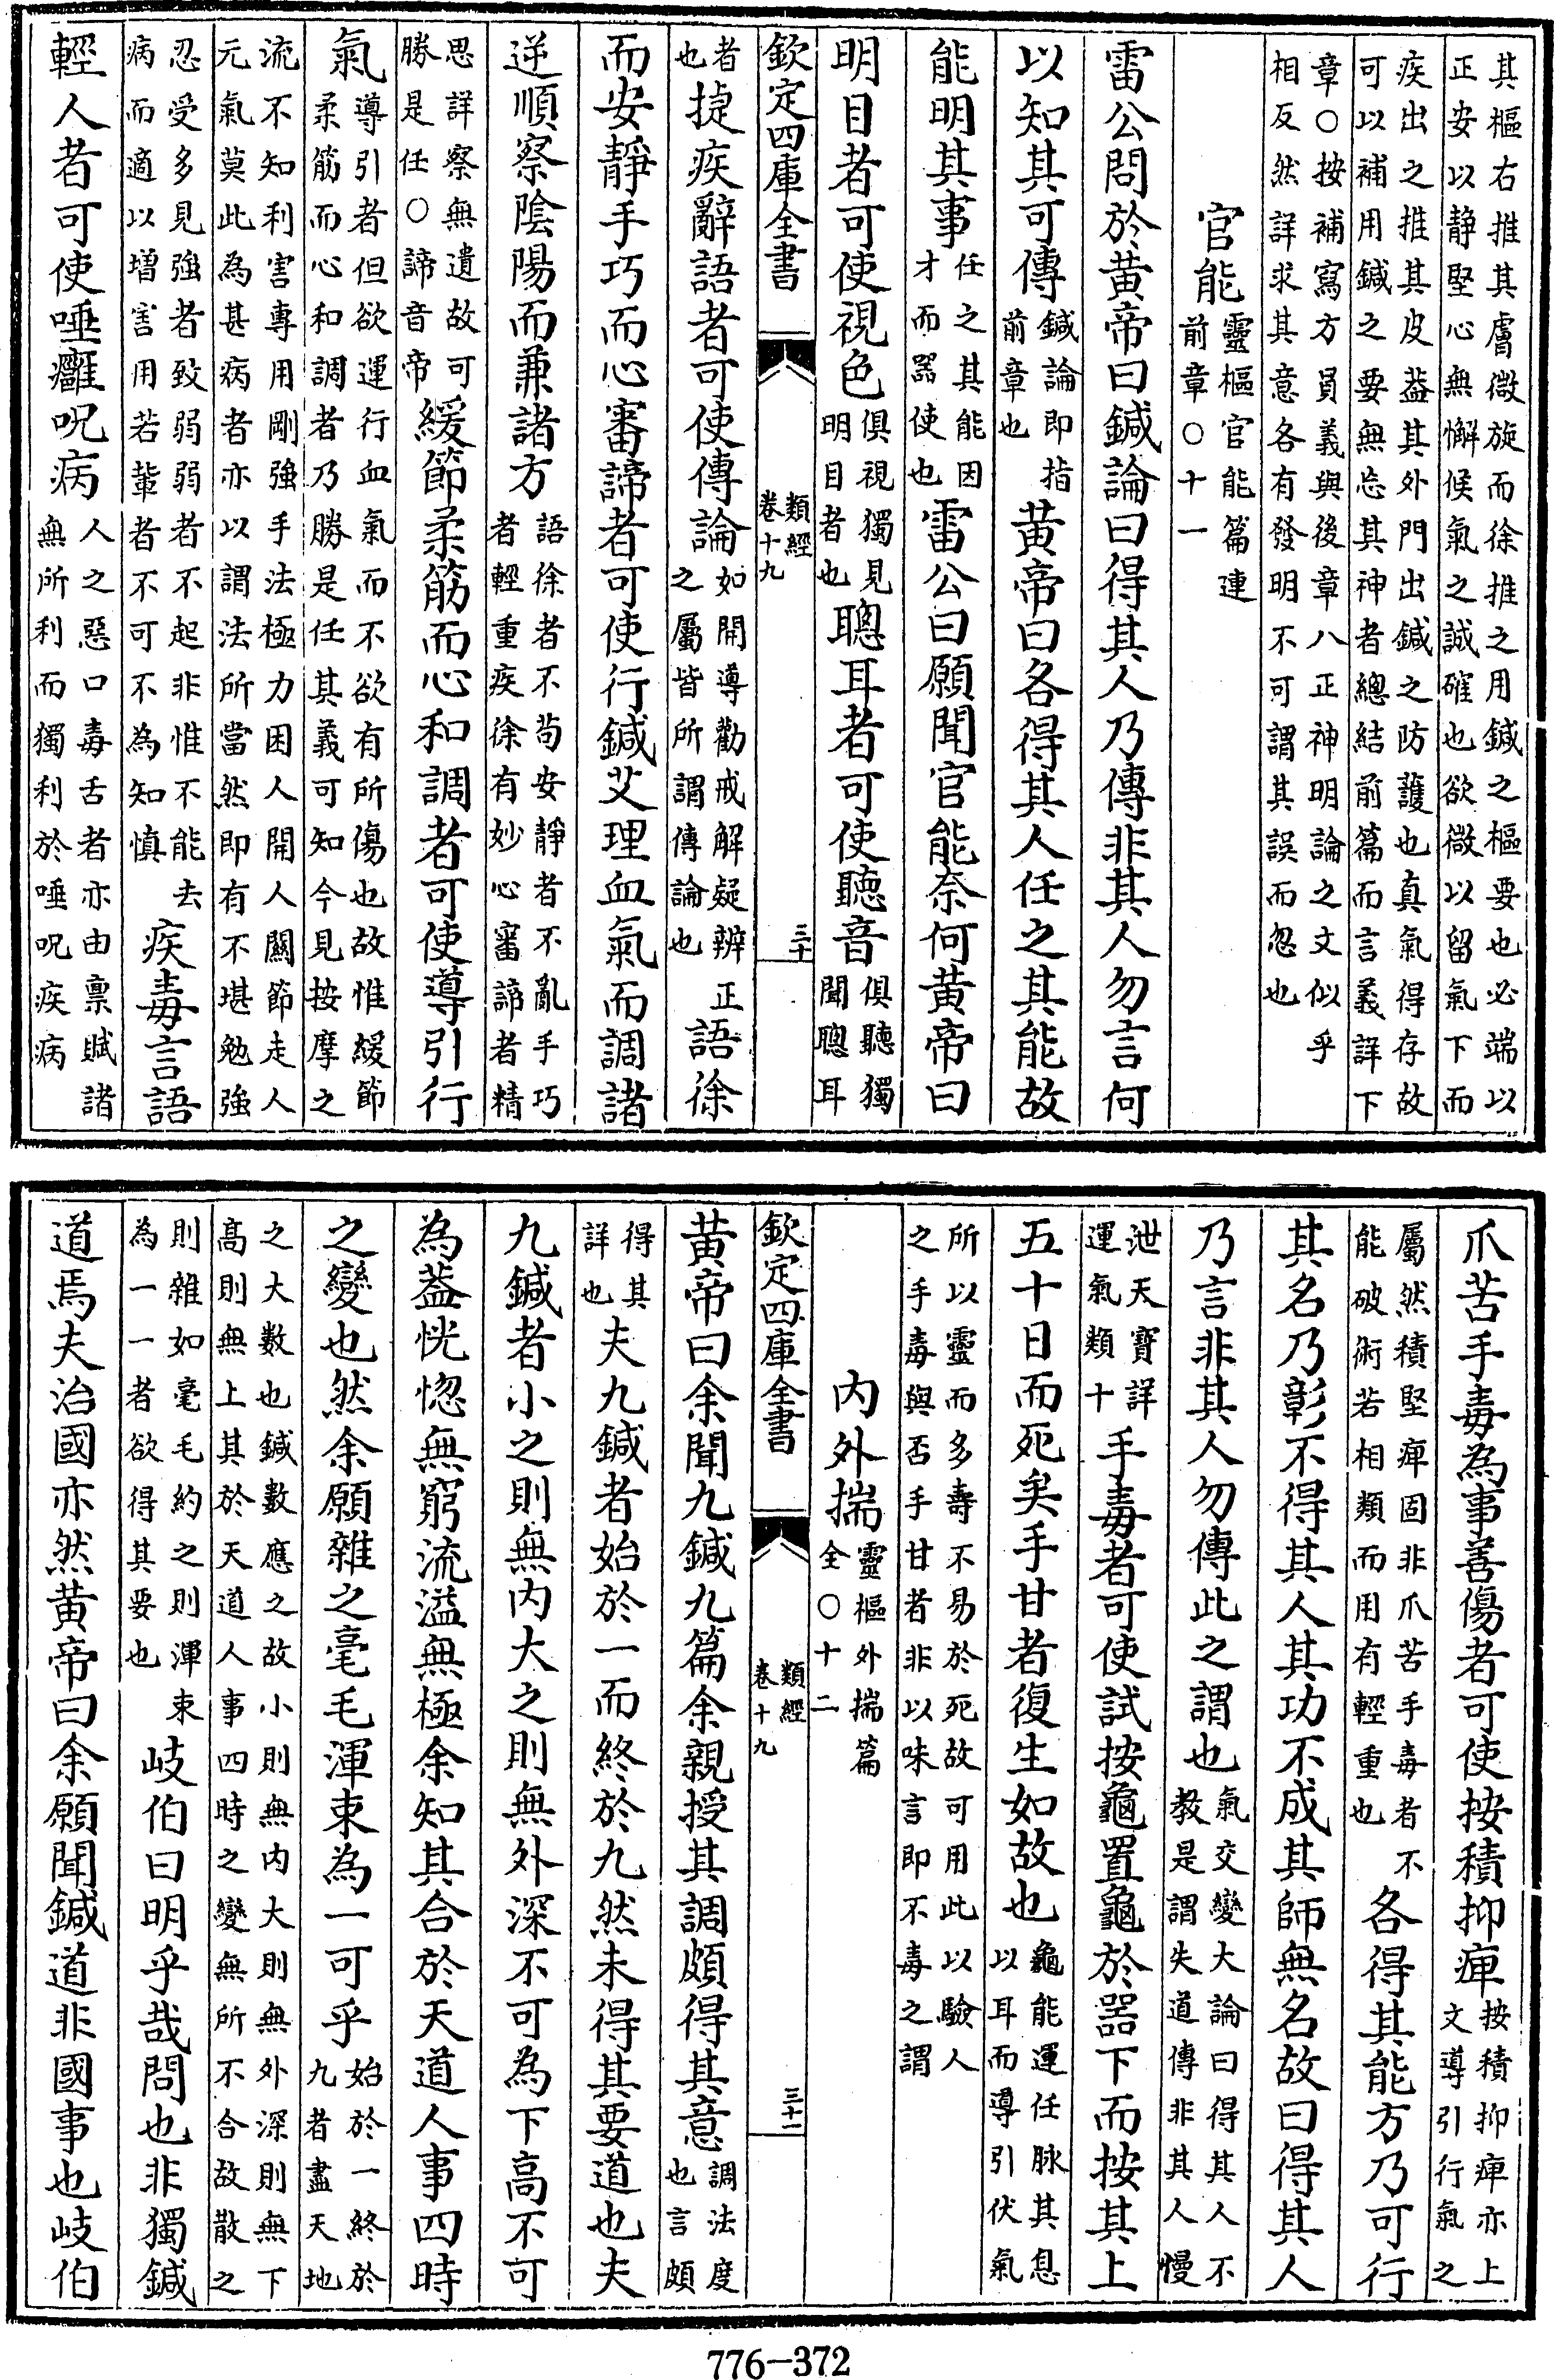 其樞右推其膚微旋而徐推之用鍼之樞要也必端以
正安以靜堅心無懈候氣之誠確也欲微以留氣下而
疾出之推其皮葢其外門出鍼之防護也真氣得存故
可以補用鍼之要無忘其神者總結前篇而言義詳下
章○按補寫方員義與後章八正神明論之文似乎
相反然詳求其意各有發明不可謂其誤而忽也
官能靈樞官能篇連前章○十一
雷公問於黄帝曰鍼論曰得其人乃傳非其人勿言何
以知其可傳鍼論即指前章也黄帝曰各得其人任之其能故
能明其事任之其能因才而器使也雷公曰願聞官能奈何黄帝曰
明目者可使視色俱視獨見明目者也聰耳者可使聽音俱聽獨聞聰耳
欽定四庫全書 類經卷十九 三十
者也捷疾辭語者可使傳論如開導勸戒解疑辨正之屬皆所謂傳論也語徐
而安靜手巧而心審諦者可使行鍼艾理血氣而調諸
逆順察陰陽而兼諸方語徐者不苟安靜者不亂手巧者輕重疾徐有妙心審諦者精
思詳察無遺故可勝是任○諦音帝緩節柔筋而心和調者可使導引行
氣導引者但欲運行血氣而不欲有所傷也故惟緩節柔筋而心和調者乃勝是任其義可知今見按摩之
流不知利害專用剛強手法極力困人開人關節走人
元氣莫此為甚病者亦以謂法所當然即有不堪勉強
忍受多見強者致弱弱者不起非惟不能去病而適以增害用若輩者不可不為知慎疾毒言語
輕人者可使唾癰呪病人之惡口毒舌者亦由禀賦諸無所利而獨利於唾呪疾病
爪苦手毒為事善傷者可使按積抑痺按積抑痺亦上文導引行氣之
屬然積堅痺固非爪苦手毒者不能破術若相類而用有輕重也各得其能方乃可行
其名乃彰不得其人其功不成其師無名故曰得其人
乃言非其人勿傳此之謂也氣交變大論曰得其人不教是謂失道傳非其人慢
泄天寶詳運氣類十手毒者可使試按龜置龜於器下而按其上
五十日而死矣手甘者復生如故也龜能運任脉其息以耳而導引伏氣
所以靈而多壽不易於死故可用此以驗人
之手毒與否手甘者非以味言即不毒之謂
内外揣靈樞外揣篇全○十二
欽定四庫全書 類經卷十九 三十一
黄帝曰余聞九鍼九篇余親授其調頗得其意調法度也言頗
得其詳也夫九鍼者始於一而終於九然未得其要道也夫
九鍼者小之則無内大之則無外深不可為下高不可
為葢恍惚無窮流溢無極余知其合於天道人事四時
之變也然余願雜之毫毛渾束為一可乎始於一終於九者盡天地
之大數也鍼數應之故小則無内大則無外深則無下
高則無上其於天道人事四時之變無所不合故散之
則雜如毫毛約之則渾束為一一者欲得其要也岐伯曰明乎哉問也非獨鍼
道焉夫治國亦然黄帝曰余願聞鍼道非國事也岐伯
776-372